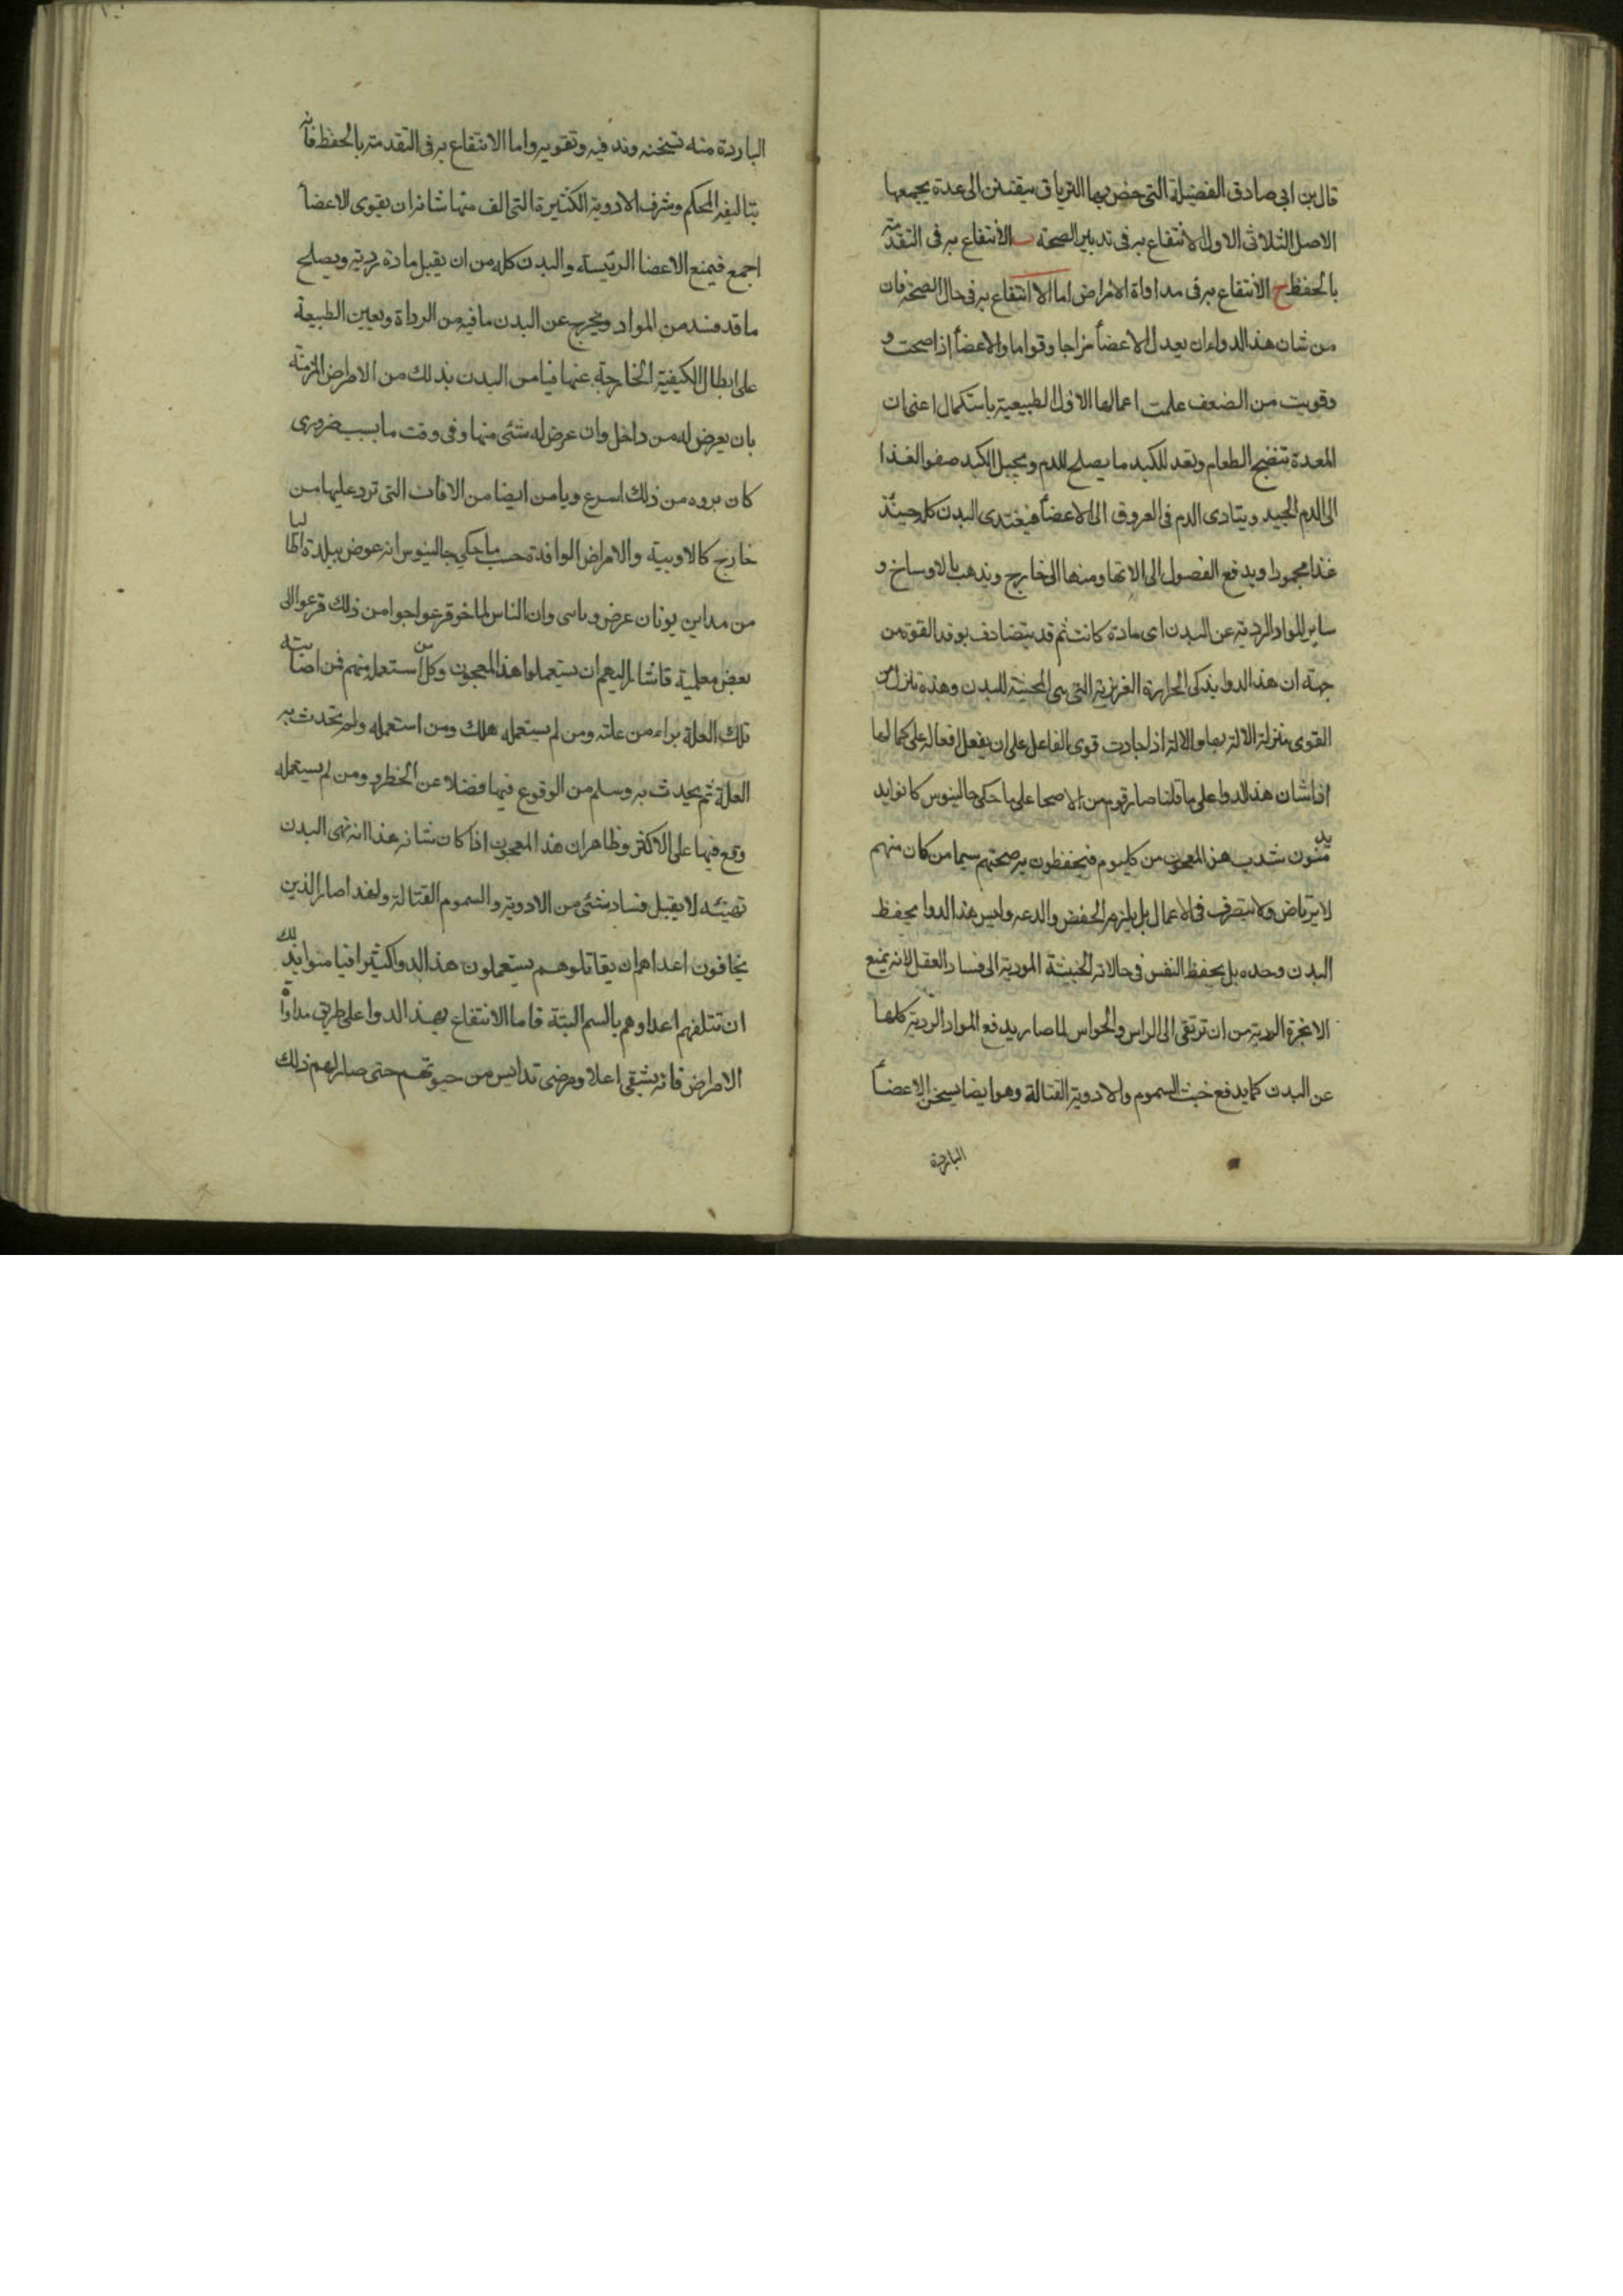 قال بن ابى صادق الفضيلة التى خص بها الترياق يتقنن الى عدة يجمعها
الاصل الثلاثى الاول الانتفاع به فى تدبير الصحة ب الانتفاع به فى التقدمة
بالحفظ ج الانتفاع به فى مداواة الامراض اما الا انتفاع به فى حال الصحة فان
من شان هذا الدواء ان يعدل الاعضأ مزاجا وقواما والاعضأ اذا صحت و
وقويت من الضعف علمت اعمالها الاول الطبيعية باستكمال اعنى ان
المعدة تنضج الطعام وتعد للكبد ما يصلح للدم ويحيل الكبد صفو الغذا
الى الدم الجيد ويتادى الدم فى العروق الى الاعضأ فيغتدى البدن كله حينئذ
غذا محمودا ويدفع الفصول الى الاتها ومنها الى خارج ويذهب بالاوساخ و
ساير المواد الردية عن البدن اى مادة كانت ثم قد يتضادف بوفد القوة من
جهة ان هذا الدوا يذكى الحرارة الغريزية التى هى المحيية للبدن وهذه تنزل من
القوى بمنزلة الالة بها والالة اذا جادت قوى الفاعل على ان يفعل افعاله على كمالها
اذا شان هذا الدوا على ما قلنا صار قوم من الاصحا على ما حكى جالينوس كانوا يد
يدمنون شدب هذا المعجون من كل يوم فيحفظون به صحتهم سيما من كان منهم
لا يرتاض ولا يتصرف فى الاعمال بل يلزم الحفض والدعه وليس هذا الدوا يحفظ
البدن وحده بل يحفظ النفس فى حالاته الخبيثة المودية الى فساد العقل لانه يمنع
الابخرة الردية من ان ترتقى الى الراس والحواس لما صار يدفع المواد الردية كلها
عن البدن كما يدفع خبث السموم والادوية القتالة وهو ايضا يسخن الاعضأ
الباردة
الباردة منه تسخنه وند فيه وتقويه واما الانتفاع به فى التقدمة بالحفظ فانه
بتاليفه المحكم وشرف الادوية الكثيرة التى الف منها شانه ان يقوى الاعضأ
اجمع فيمنع الاعضا الرئيسة والبدن كله من ان يقبل مادة ردية ويصلح
ما قد فسد من المواد ويخرج عن البدن ما فيه من الرداة ويعين الطبيعة
على ابطال الكيفية الخارجة عنها فيامن البدن بذلك من الامراض المزمنة
بان يعرض له من داخل وان عرض له شئى منها وفى وقت ما بسبب ضرورى
كان بروه من ذلك اسرع ويامن ايضا من الافات التى ترد عليها من
خارج كالاوبية والامراض الوافدة حسب ما حكى جالينوس انه عوض ببلدة
من مداين يونان عرض وباسى وان الناس لما فزعوا من ذلك فزعوا الى
بعض معلمية فاشار اليهم ان يستعملوا هذا المعجون وكل من استعمله منهم فمن اصابته
تلك العلة براء من علته ومن لم يستعمله هلك ومن استعمله ولم تحدث به
العلة ثم يحدث به وسلم من الوقوع فيها فضلا عن الخطر ومن لم يستعمله
وقع فيها على الاكثر وظاهر ان هذا المعجون اذا كان شانه هذا انه يهى البدن
تهيئه لا يقبل فساد شئى من الادوية والسموم القتالة ولغد اصار الذين
يخافون اعداهم ان يقاتلوهم يستعملون هذا الدوا كثيرا فيامنوا بذلك
ان تتلفهم اعداوهم بالسم البتة فاما الانتفاع بهذا الدوا على طريق مداواة
الامراض فانه يشفى اعلا ومرضى قد ايس من حيوتهم حتى صار لهم ذلك